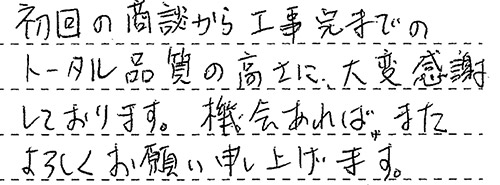 初回の商談から工事完までの
トータル品質の高さに、大変感謝
しております。機会あれば、また
よろしくお願い申し上げます。